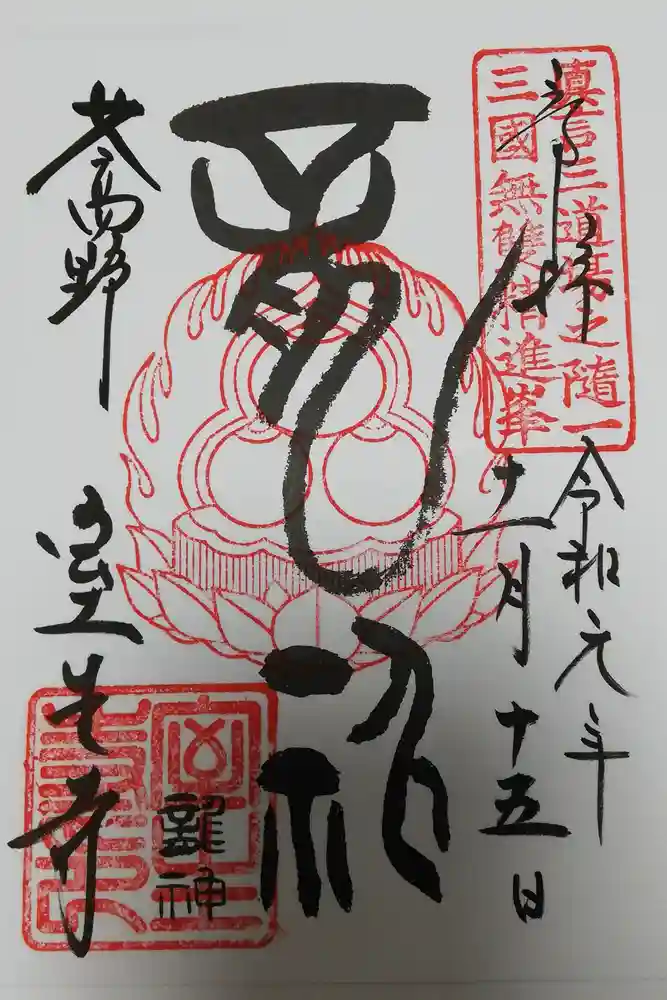 奉拝
真言三道場之隨一
三國無雙精進峯
令和元年
十一月十五日
龍神
女高野
室生寺
龍神